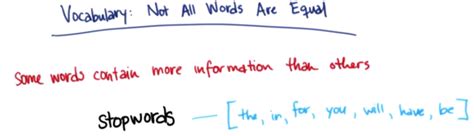 Vocabulary: Not All Words Are Equal
Some words contain more information than others
stopwords — [the, in, for, you, will, have, be]